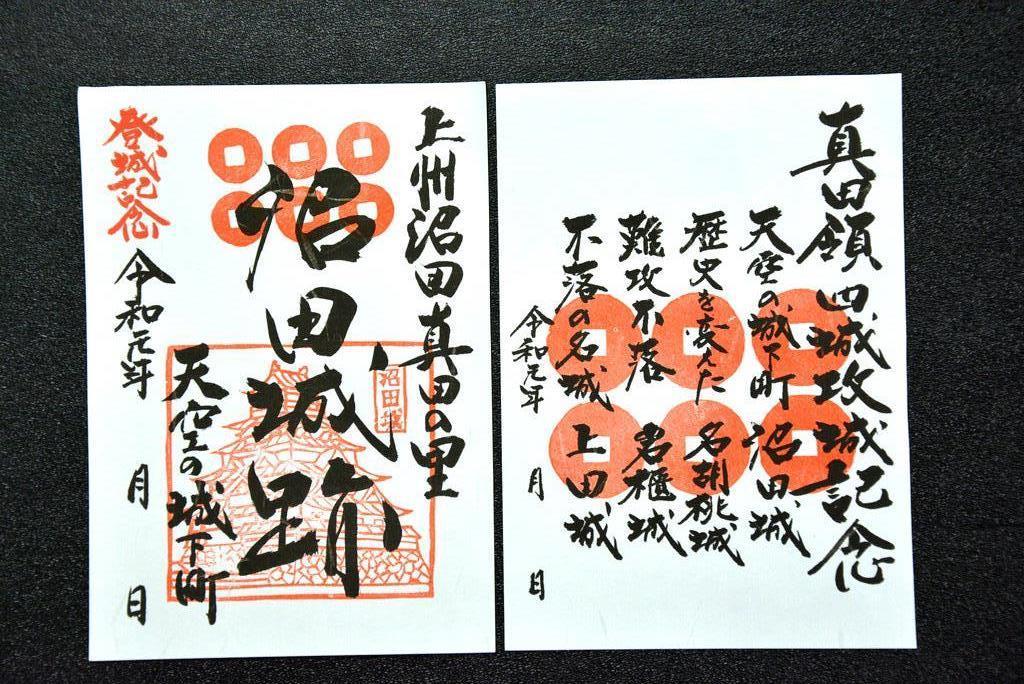 上州沼田真田の里
沼田城跡
沼田城
天空の城下町
登城記念
令和元年 月 日
真田領四城攻城記念
天空の城下町 沼田城
歴史を変えた 名胡桃城
難攻不落 岩櫃城
不落の名城 上田城
令和元年 月 日